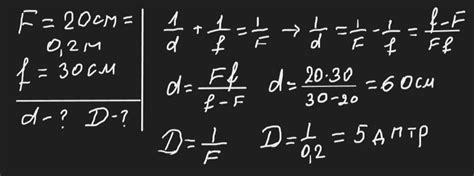 F = 20см =
0,2м
f = 30см
d - ? D - ?
1/d + 1/f = 1/F → 1/d = 1/F - 1/f = (f-F)/(Ff)
d = Ff/(f-F) d = 20·30/(30-20) = 60см
D = 1/F D = 1/0,2 = 5 дптр